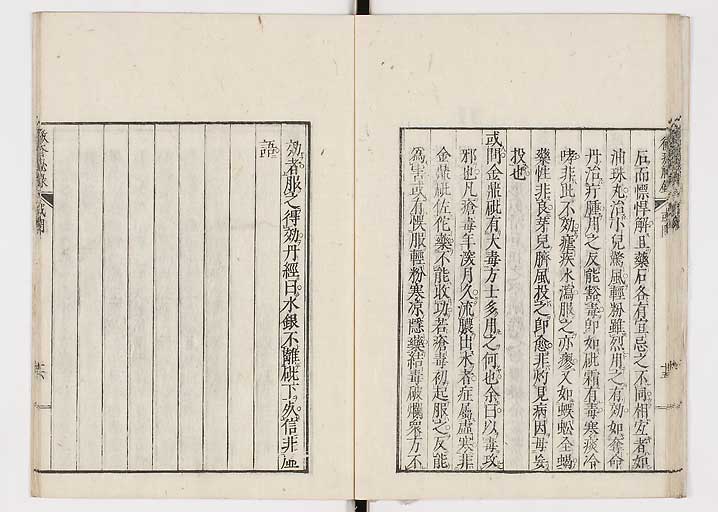 石而慓悍解且藥石各有宜忌之不同相安者如
油珠丸治小兒驚風輕粉雖烈用之有効如奪命
丹治疔腫用之反能豁毒即如砒霜有毒寒痰冷
哮非此不効瘧疾水瀉服之亦瘳又如蜈蚣全蝎
藥性非良芽兒臍風投之即愈非灼見病因毋妄
投也
或問金鼎砒有大毒方士多用之何也余曰以毒攻
邪也凡瘡毒年深月久流膿出水者症屬虛寒非
金鼎砒佐佗藥不能收功若瘡毒初起服之反能
爲害或有悞服輕粉寒凉隱藥結毒破爛衆方不
効者服之得効丹經曰水銀不離砒下灰信非虛
語
或問